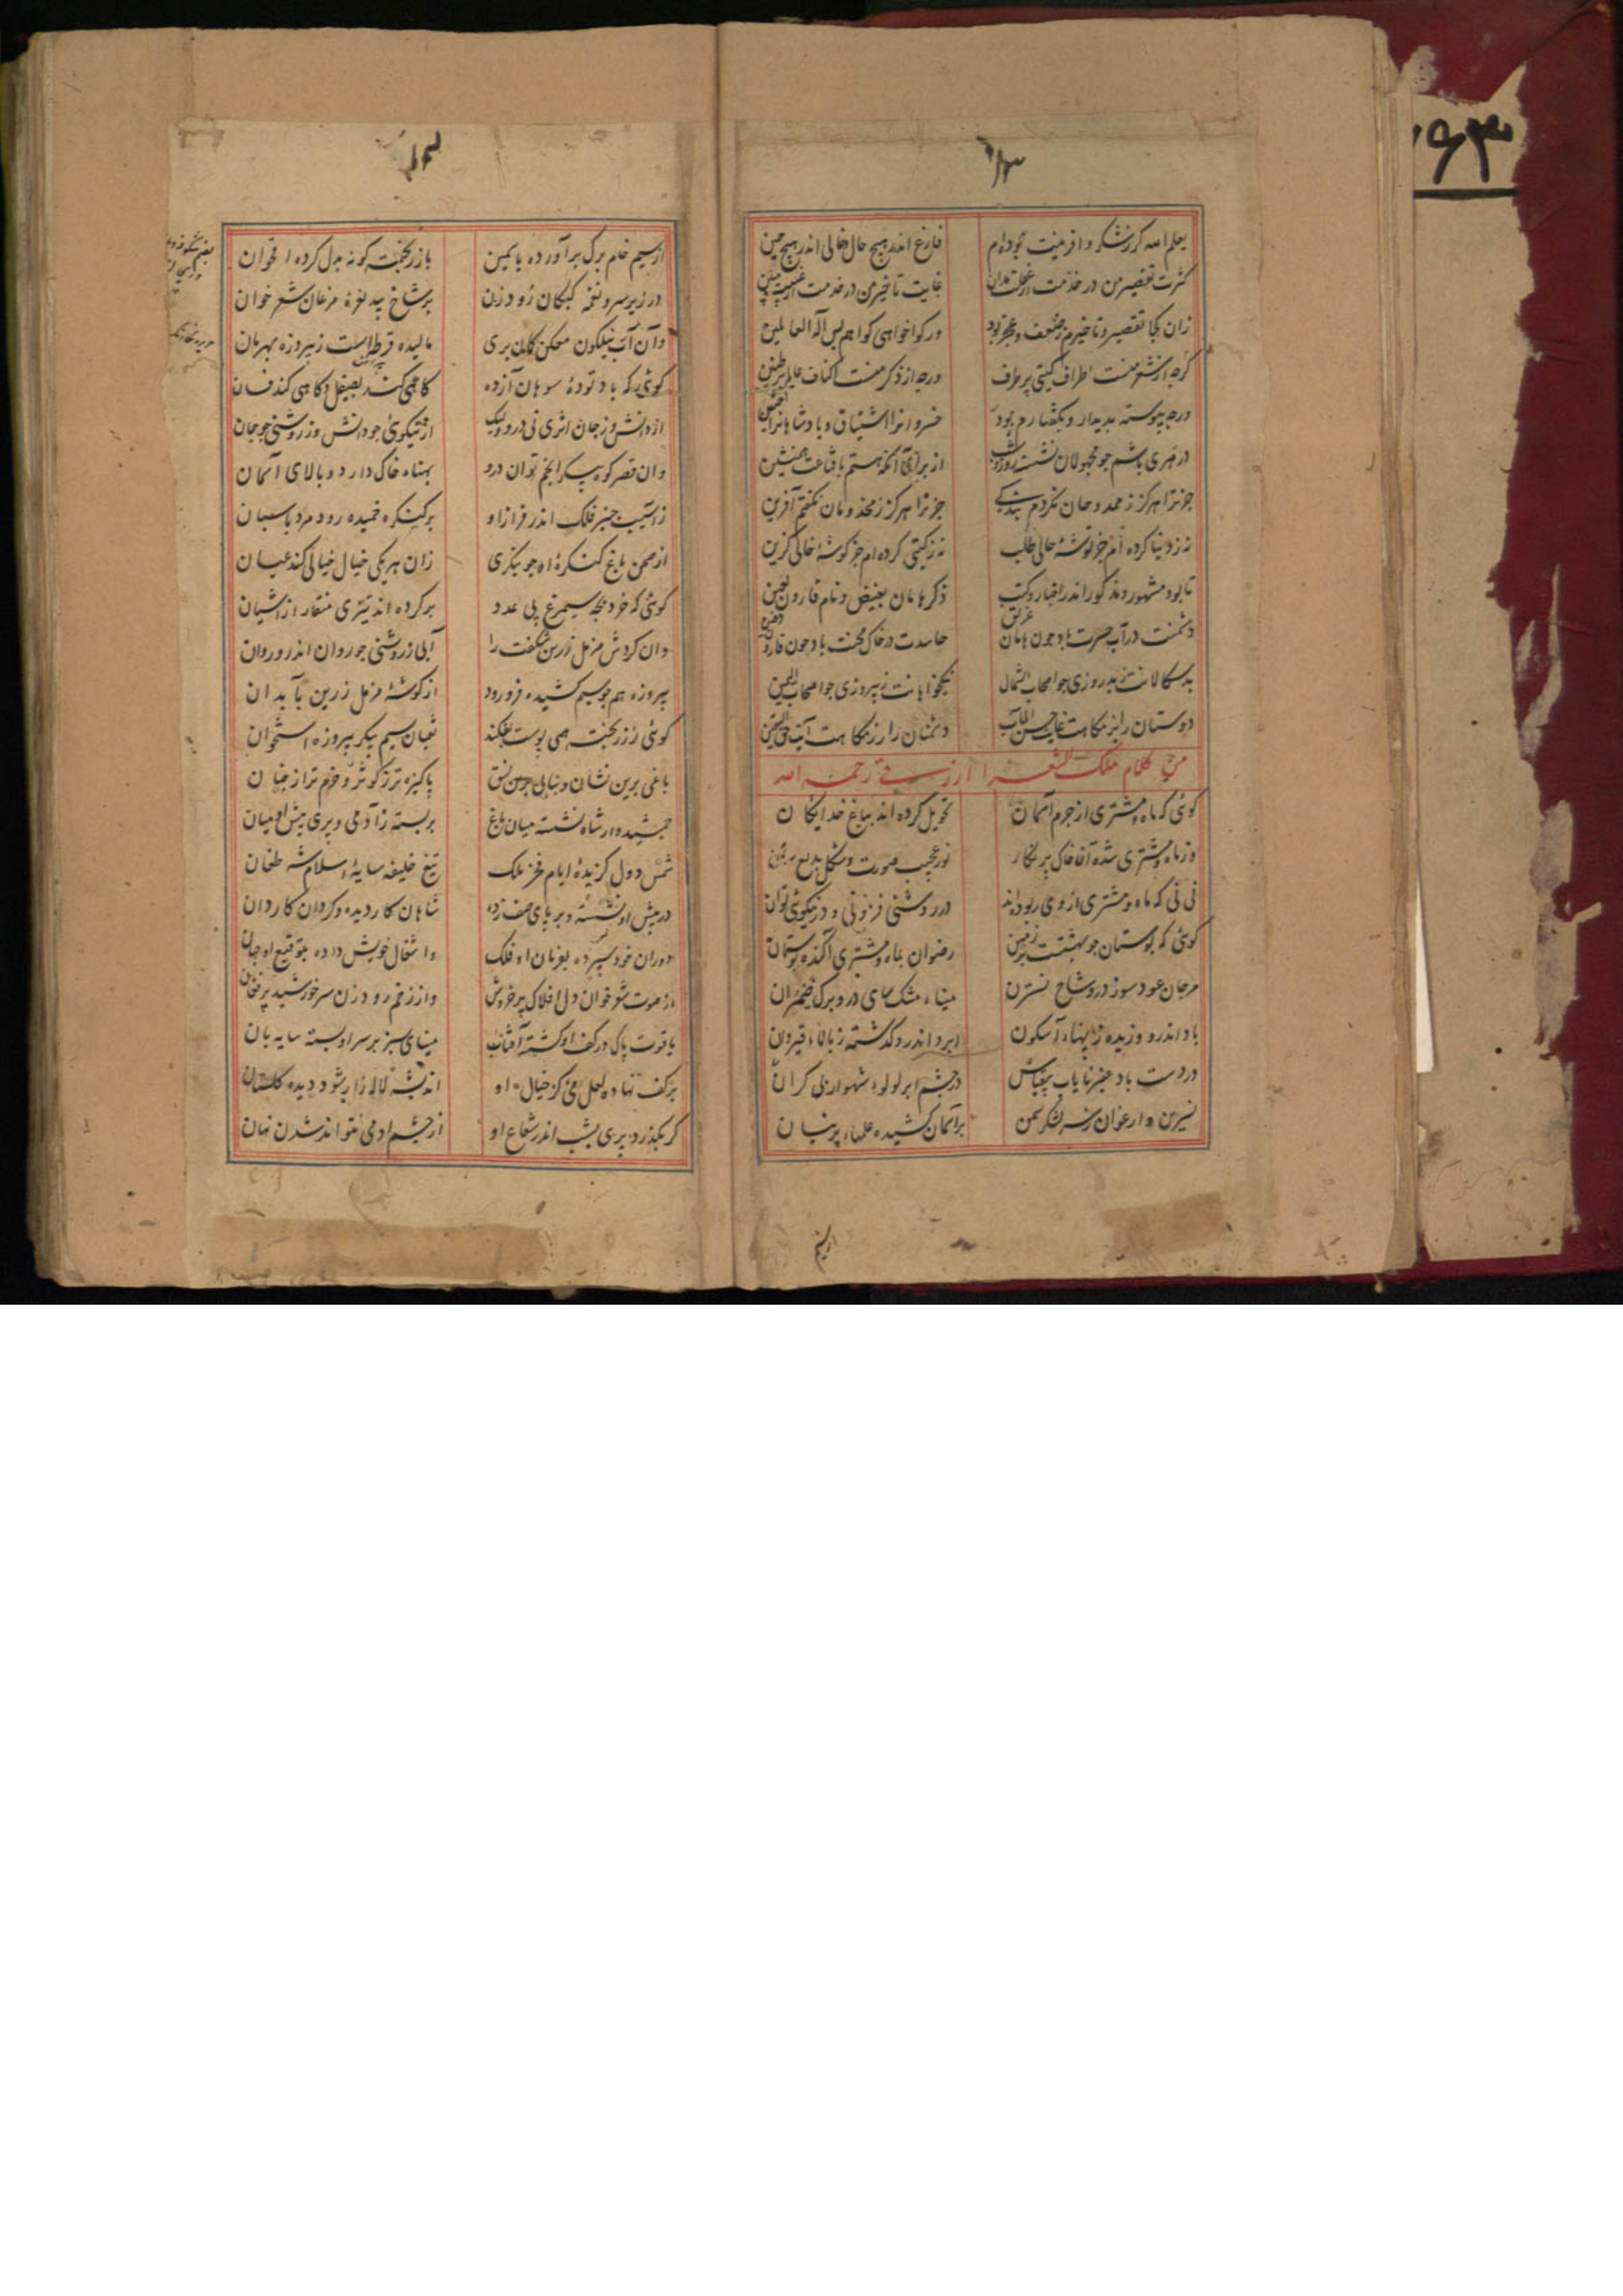 ۱۳
یعلم الله کز شکر وافر منیت بوده‌ام فارغ اندر هیچ حال و خالی اندر هیچ حین
کثرت تقصیر من در خدمت از غفلت مدان غایت تاخیر من در خدمت از
زان کجا تقصیر و تاخیرم ز ضعف و عجز بود ور کوا خواهی کواهم بس اله العالمین
کرچه از شعر منست اطراف کیتی پر طرف ورچه از ذکر منست اکناف عالم پر طنین
ورچه پیوسته بدیدار و بکفتارم بود خسروانرا اشتیاق و پادشاهانرا
در هری باشم جو مجهولان نشسته روز و شب از برای آنکه هستم با قناعت همنشین
جز ترا هرکز ز ممدوحان نکردم بندکی جز ترا هرکز ز مخدومان نکفتم آفرین
نه ز دنیا کرده ام جز توشهٔ حالی طلب نه ز کیتی کرده ام جز کوشهٔ خالی کزین
تا بود مشهور و مذکور اندر اخبار و کتب ذکر هامان بغیض و نام قارون لعین
دشمنت در آب حسرت باد جون هامان غریق حاسدت در خاک محنت باد جون قارون دفین
بدسکالانت ز بدروزی جو اصحاب الشمال نیکخواهانت ز پیروزی جو اصحاب الیمین
دوستان را بزمکاهت غایت حسن المآب دشمنان را رزمکاهت آیت حق الیقین
من کلام ملک الشعرا ازرقی رحمه الله
کوئی که ماه و مشتری از جرم آسمان تحویل کرده اند بباغ خدایکان
وز ماه و مشتری شده آن خاک پر نکار نور عجیب صورت و شکل بدیع
نی نی که ماه و مشتری از وی ربوده اند در روشنی فزونی و در نیکوئی توان
کوئی که بوستان جو بهشتست بر زمین رضوان بماه و مشتری آکنده بوستان
مرجان عود سوز در و شاخ نسترن میناء مشک سای در و برک ضیمران
باد اندر و وزیده ز پهناء آسکون ابر اندر و کذشته ز بالاء قیروان
در دست باد عنبر نایاب بیقیاس در چشم ابر لولوء شهوار بی کران
نسرین و ارغوان زسر لشکر سمن بر آسمان کشیده علمهاء پرنیان
از سیم
از سیم خام برک بر آورده یاسمین باز ریخته کونه بدل کرده ارغوان
در زیر سرو نغمه کبکان رود زن بر شاخ بید نعرهٔ مرغان شعر خوان
وان آب نیلکون ممکن کمان بری مالیده قرطه ایست ز پیروزه بهرمان
کوئی که باد تودهٔ سوهان آزده کاهی کند بصیقل و کاهی کند فسان
از دانش و ز جان اثری نی درو و لیک از نیکوئی جو دانش و ز روشنی جو جان
وان قصر کوه پیکر انجم توان درو پهناء خاک دارد و بالای آسمان
ز آسیب جنبر فلک اندر فراز او بر کنکره خمیده رود مرد پاسبان
از صحن باغ کنکرهٔ او جو بنکری زان هر یکی خیال خیالی کند عیان
کوئی که خرد بچه سیمرغ بی عدد بر کرده اند تیزی منقار از آشیان
وان کردش مزمل زرین شکفت را آبی ز روشنی جو روان اندرو روان
پیروزه هم جو سیم کشیده فرو رود از کوشهٔ مزمل زرین بآبدان
کوئی ز زر پخته همی پوست بفکند ثعبان سیم پیکر پیروزه استخوان
باغی برین نشان و بنایی برین نسق پاکیزه تر ز کوثر و خرم تر از جنان
جمشید وار شاه نشسته میان باغ بر بسته ز آدمی و پری پیش او میان
شمس دول کزیدهٔ ایام فخر ملک تیغ خلیفه سایهٔ اسلام شه طغان
در پیش او نشسته و بر پای صف زده شاهان کاردیده و کردان کاردان
دوران خود سپرده بفرمان او فلک و اشغال خویش داده بتوقیع او جهان
از صوت شعر خوان دل افلاک پر خروش وز زخم رود زن سر خورشید پر فغان
یاقوت پاک در کف او کشته آفتاب مینای سبز بر سر او بسته سایه بان
بر کف نهاده لعل میی کز خیال او اندیشه لاله زار شود و دیده کلستان
کر بکذرد پری بشب اندر شعاع او از چشم آدمی نتواند شدن نهان